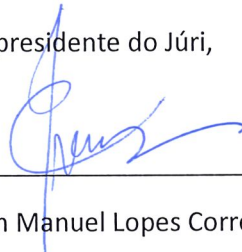 presidente do Júri,
Manuel Lopes